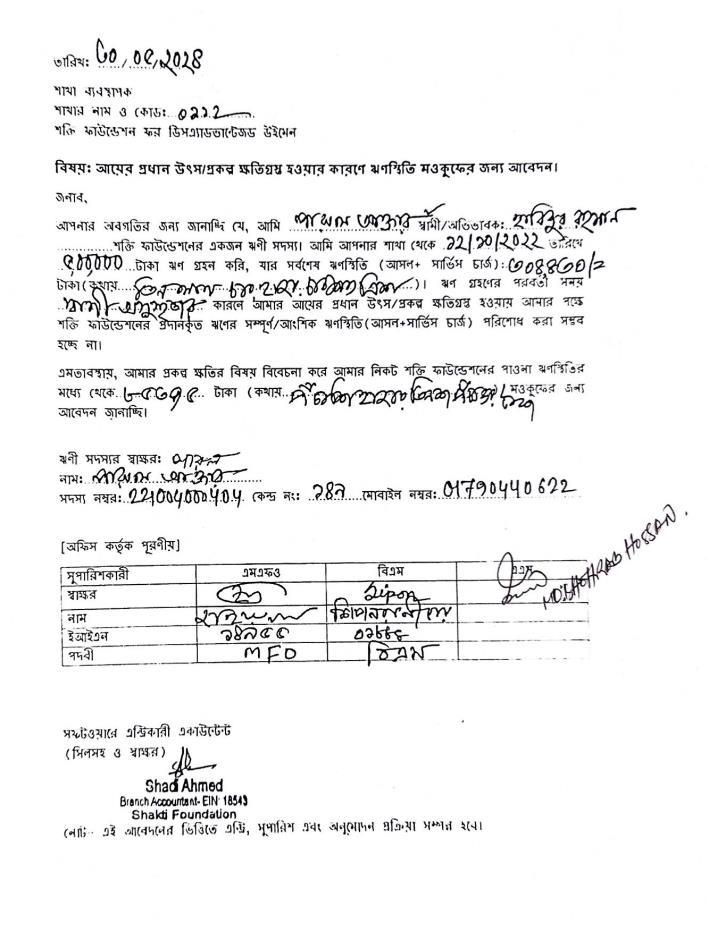 তারিখ: ৩০/০৫/২০২৪
শাখা ব্যবস্থাপক
শাখার নাম ও কোড: ০২২২
শক্তি ফাউন্ডেশন ফর ডিসএ্যাডভান্টেজড উইমেন
বিষয়: আয়ের প্রধান উৎস/প্রকল্প ক্ষতিগ্রস্থ হওয়ার কারণে ঋণস্থিতি মওকুফের জন্য আবেদন।
জনাব,
আপনার অবগতির জন্য জানাচ্ছি যে, আমি আক্তার স্বামী/অভিভাবক: হাবিবুর রহমান
শক্তি ফাউন্ডেশনের একজন ঋণী সদস্য। আমি আপনার শাখা থেকে ১২/১০/২০২২ তারিখে
৫০০০০০ টাকা ঋণ গ্রহন করি, যার সর্বশেষ ঋণস্থিতি (আসল+ সার্ভিস চার্জ): ৩০৪৪৩০/=
টাকা (কথায় তিন লক্ষ চার হাজার চারশত ত্রিশ)। ঋণ গ্রহণের পরবর্তী সময়
স্বামী অসুস্থতার কারনে আমার আয়ের প্রধান উৎস/প্রকল্প ক্ষতিগ্রস্ত হওয়ায় আমার পক্ষে
শক্তি ফাউন্ডেশনের প্রদানকৃত ঋণের সম্পূর্ণ/আংশিক ঋণস্থিতি(আসল+সার্ভিস চার্জ) পরিশোধ করা সম্ভব
হচ্ছে না।
এমতাবস্থায়, আমার প্রকল্প ক্ষতির বিষয় বিবেচনা করে আমার নিকট শক্তি ফাউন্ডেশনের পাওনা ঋণস্থিতির
মধ্যে থেকে টাকা (কথায় মওকুফের জন্য
আবেদন জানাচ্ছি।
ঋণী সদস্যের স্বাক্ষর:
নাম: আক্তার
সদস্য নম্বর: 221004000404 কেন্দ্র নং: ২৪৭ মোবাইল নম্বর: 01790440622
[অফিস কর্তৃক পূরণীয়]
সুপারিশকারী এমএফও বিএম এএম
স্বাক্ষর Sipon
নাম MD: HOSSAN.
ইআইএন
পদবী MFO বিএম
সফটওয়্যারে এন্ট্রিকারী একাউন্টেন্ট
(সিলসহ ও স্বাক্ষর)
Shad Ahmed
Branch Accountant- EIN: 18543
Shakti Foundation
নোট- এই আবেদনের ভিত্তিতে এন্ট্রি, সুপারিশ এবং অনুমোদন প্রক্রিয়া সম্পন্ন হবে।